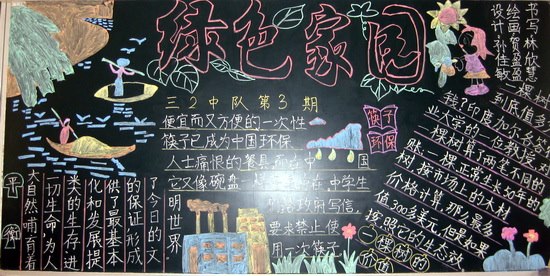 绿色家园
书写林欣慧
绘画贺盈盈
设计孙佳敏
三2中队第3期
便宜而又方便的一次性
筷子已成为中国环保
人士痛恨的餐具而在中国
它又像碗盘一样
在中学生
写信，
要求禁止使
用一次筷子
筷子
环保
一棵树
到底值多
钱？印度加尔各答
业大学的一位教授
一棵树算了两笔不同的
账，一棵正常生长50年的
树，按市场上的木材
价格计算，那么最多
值300多美元，但是如果
按照它的生态效
一棵树的
价值
大自然哺育着
一切生命，为人
类的生存进
化和发展提
供了最基本
的保证，形成
了今日的文
明世界